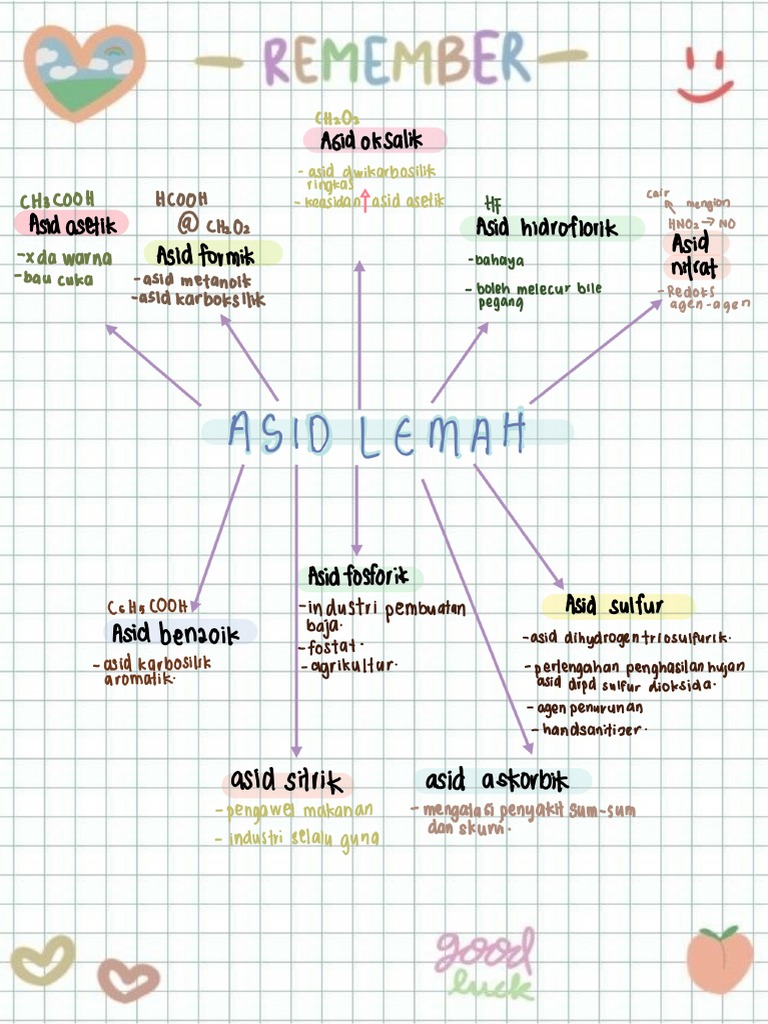 REMEMBER
CH2O2
Asid oksalik
- asid dwikarbosilik
ringkas
- keasidan ↑ asid asetik
CH3COOH
Asid asetik
- x da warna
- bau cuka
HCOOH
@ CH2O2
Asid formik
- asid metanoik
- asid karboksilik
HF
Asid hidroflorik
- bahaya
- boleh melecur bile
pegang
cair mengion
HNO2 → NO
Asid
nitrat
- Redoks
agen-agen
ASID LEMAH
C6H5COOH
Asid benzoik
- asid karbosilik
aromatik.
Asid fosforik
- industri pembuatan
baja.
- fostat.
- agrikultur.
Asid sulfur
- asid dihydrogentriosulfurik.
- pertengahan penghasilan hujan
asid drpd sulfur dioksida.
- agen penurunan
- handsanitizer.
asid sitrik
- pengawet makanan
- industri selalu guna
asid askorbik
- mengatasi penyakit sum-sum
dan skurvi.
good
luck